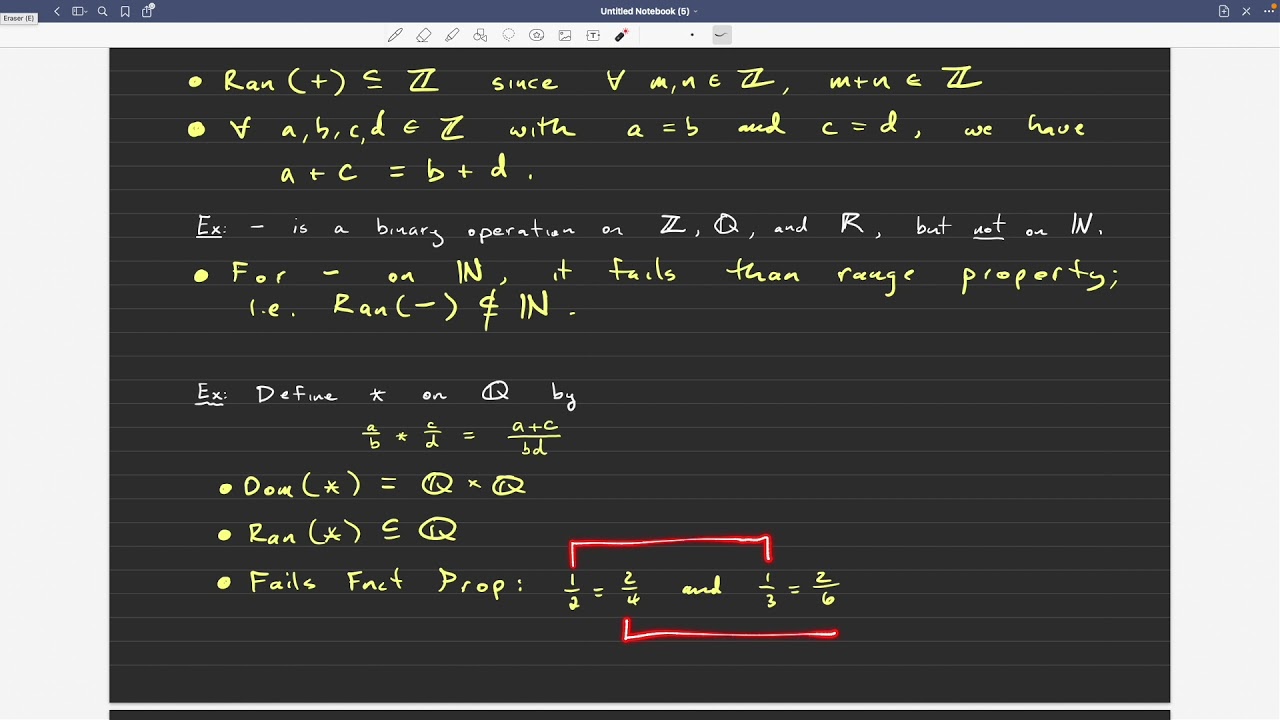 Untitled Notebook (5)
Eraser (E)
• Ran (+) ⊆ ℤ since ∀ m,n ∈ ℤ, m+n ∈ ℤ
• ∀ a,b,c,d ∈ ℤ with a = b and c = d, we have
a + c = b + d.
Ex: − is a binary operation on ℤ, ℚ, and ℝ, but not on ℕ.
• For − on ℕ, it fails than range property;
i.e. Ran(−) ⊄ ℕ.
Ex: Define * on ℚ by
a/b * c/d = a+c/bd
• Dom(*) = ℚ × ℚ
• Ran(*) ⊆ ℚ
• Fails Fnct Prop: 1/2 = 2/4 and 1/3 = 2/6